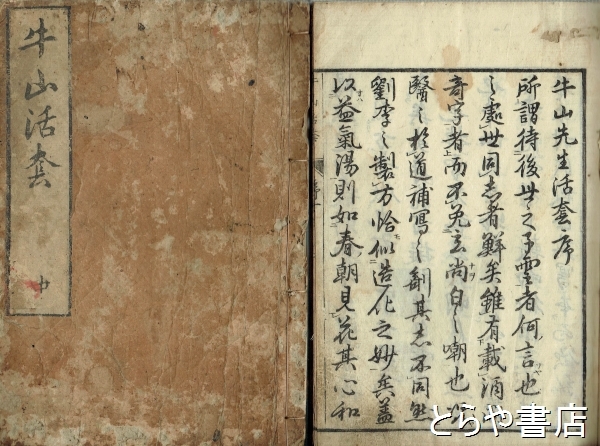 牛山活套
中
牛山先生活套序
所謂待後世之子雲者何言也
之處世同志者鮮矣雖有載酒
奇字者而不免玄尚白之嘲也
醫之於道補寫之劑其志不同然
劉李之製方恰似造化之妙矣蓋
以益氣湯則如春朝見花其心和
とらや書店